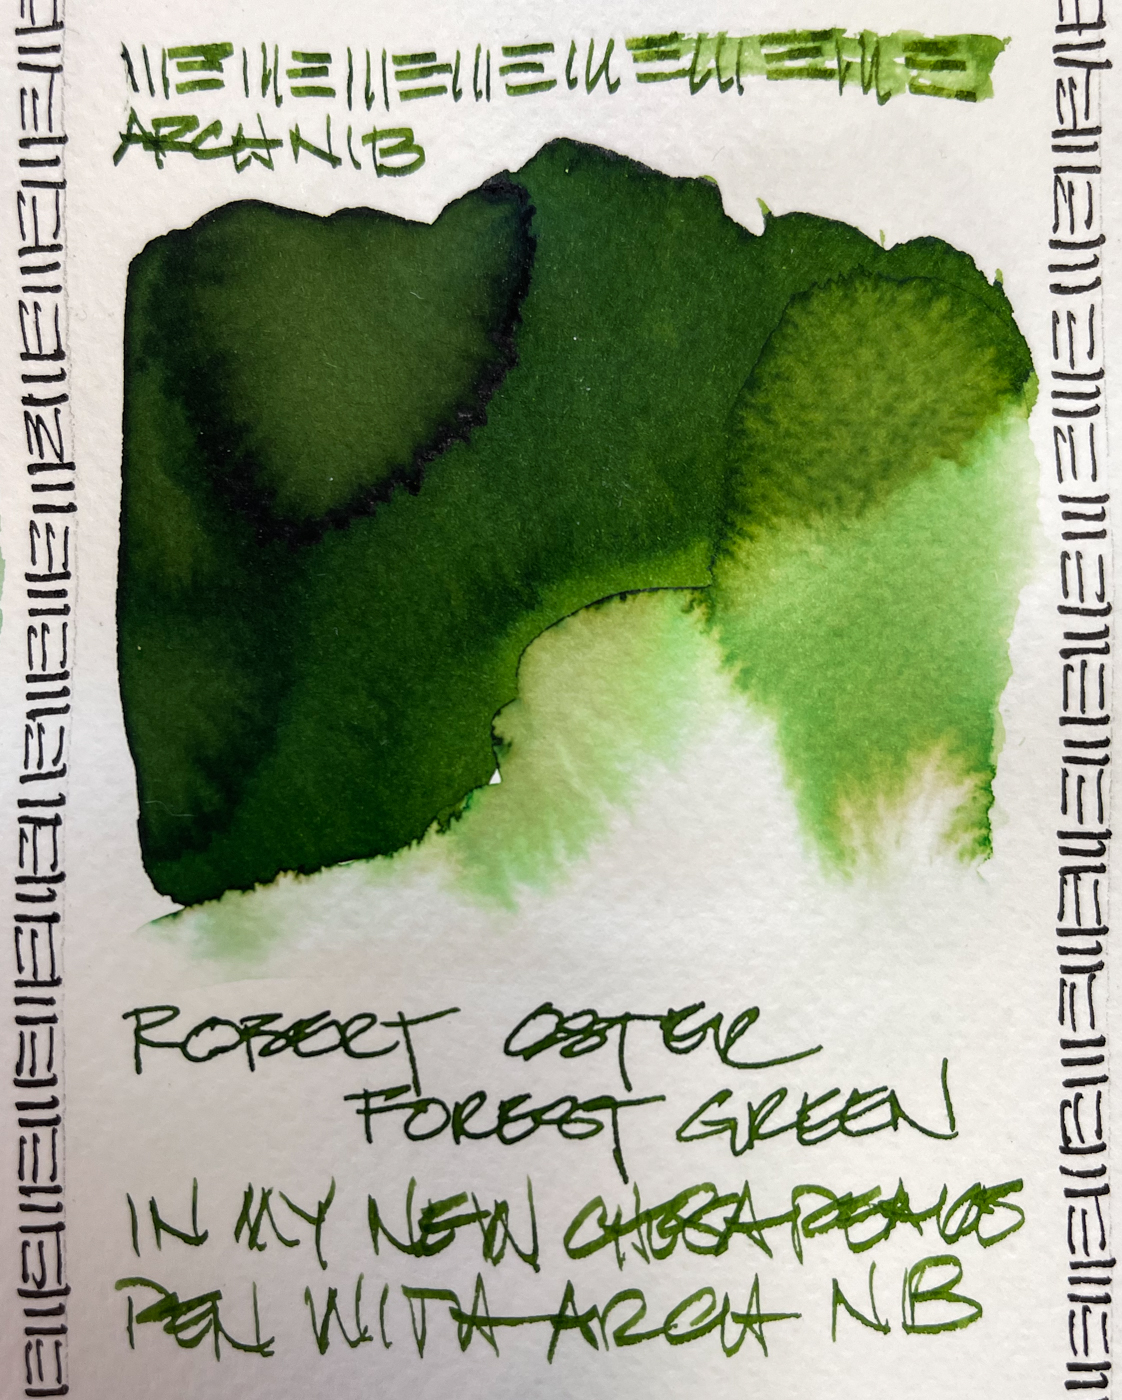 ARCH NIB
ROBERT OSTER
FOREST GREEN
IN MY NEW CHESAPEAKE
PEN WITH ARCH NIB